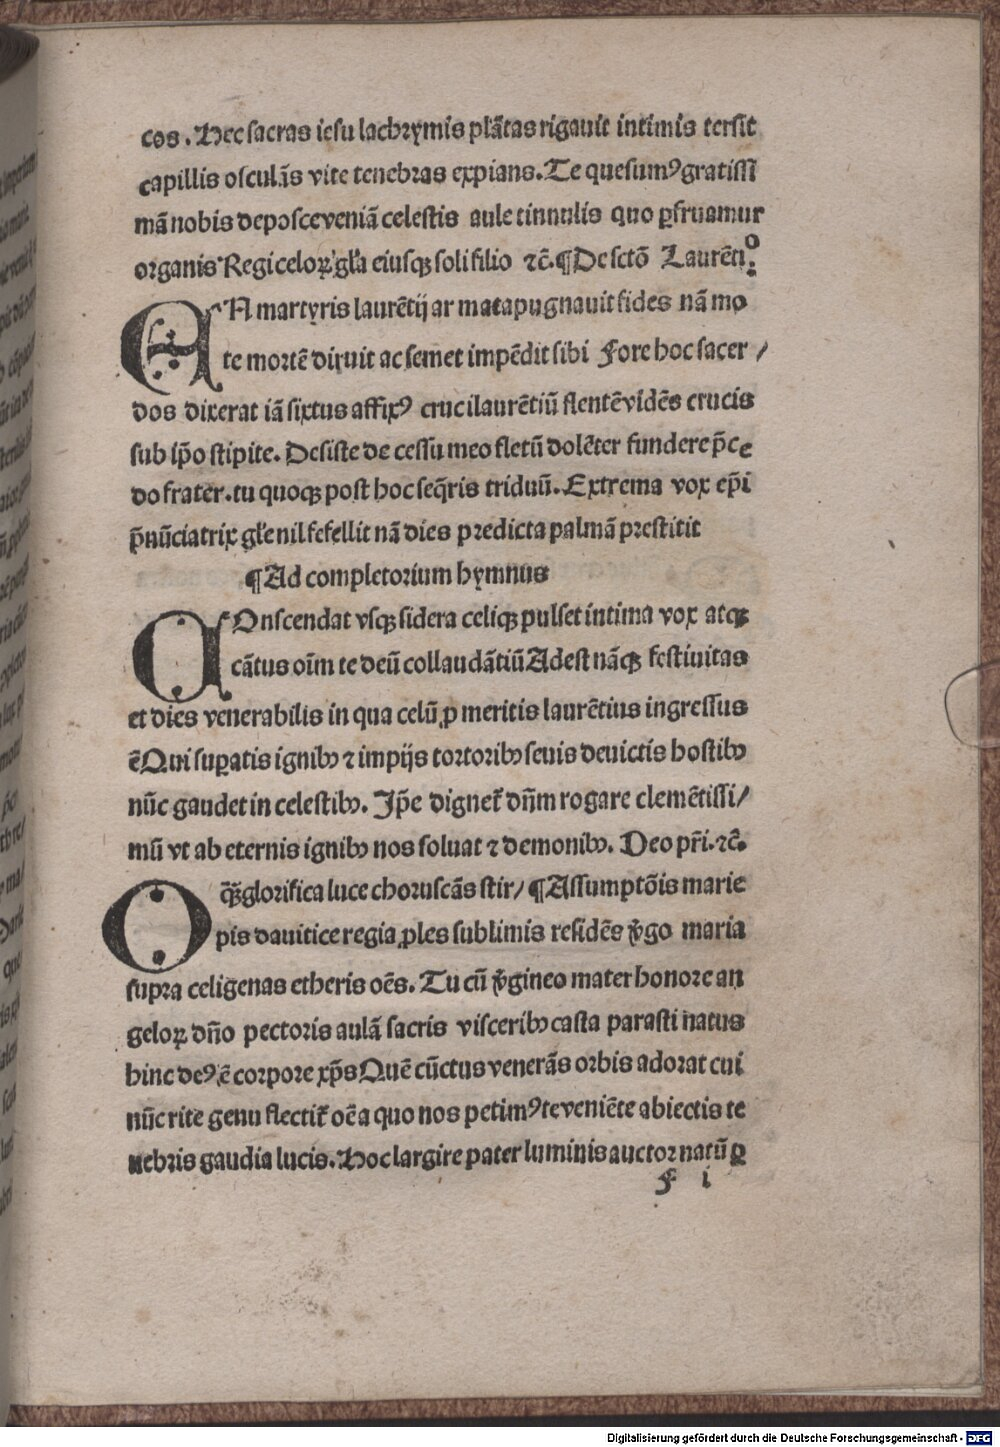 cos. Hec sacras iesu lachrymis plãtas rigauit intimis tersit
capillis osculãs vite tenebras expians. Te quesumꝰ gratissi
mã nobis deposce veniã celestis aule tinnulis quo ꝑfruamur
organis Regi celoꝝ gľa eiusqꝫ soli filio ⁊c̃. ¶De sctõ Laurẽtiº.
EN martyris laurẽtij ar mata pugnauit fides nã mo
te mortẽ diruit ac semet impẽdit sibi Fore hoc sacer/
dos dixerat iã sixtus affixꝰ cruci laurẽtiũ flentẽ vidẽs crucis
sub ip̃o stipite. Desiste de cessu meo fletũ dolẽter fundere p̃ce
do frater. tu quoqꝫ post hoc seq̃ris triduũ. Extrema vox ep̃i
p̃nũciatrix gľe nil fefellit nã dies predicta palmã prestitit
¶Ad completorium hymnus
COnscendat vsqꝫ sidera celiqꝫ pulset intima vox atqꝫ
cãtus oĩm te deũ collaudãtiũ Adest nãqꝫ festiuitas
et dies venerabilis in qua celũ ꝓ meritis laurẽtius ingressus
ẽ Qui suꝑatis ignibꝫ ⁊ impijs tortoribꝫ seuis deuictis hostibꝫ
nũc gaudet in celestibꝫ. Ip̃e dignet̃ dñm rogare clemẽtissi/
mũ vt ab eternis ignibꝫ nos soluat ⁊ demonibꝫ. Deo pr̃i. ⁊c̃.
O q̃ glorifica luce choruscãs stir/ ¶Assumptõis marie
pis dauitice regia ꝓles sublimis residẽs ṽgo maria
supra celigenas etheris oẽs. Tu cũ ṽgineo mater honore an
geloꝝ dño pectoris aulã sacris visceribꝫ casta parasti natus
hinc deꝰ ẽ corpore xp̃s Quẽ cũctus venerãs orbis adorat cui
nũc rite genu flectit̃ oẽ a quo nos petimꝰ te veniẽte abiectis te
nebris gaudia lucis. Hoc largire pater luminis auctor natũ ꝑ
f i
Digitalisierung gefördert durch die Deutsche Forschungsgemeinschaft - DFG